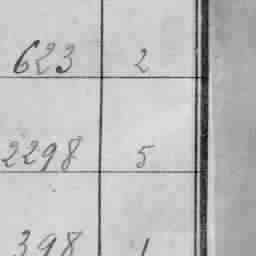 623 2
2298 5
398 1